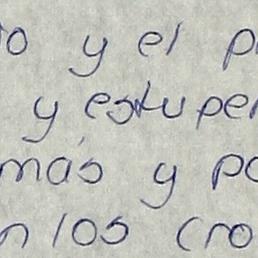 o y el p
y estuper
más y po
n los (ro